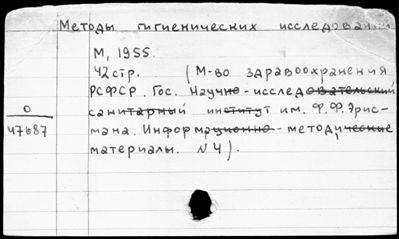 Методы гигиенических исследований
М, 1955.
42 стр. (М-во здравоохранения
РСФСР. Гос. Научно-исследовательский
санитарный институт им. Ф.Ф.Эрис-
мана. Информационно-методические
материалы. N 4).
0
47687